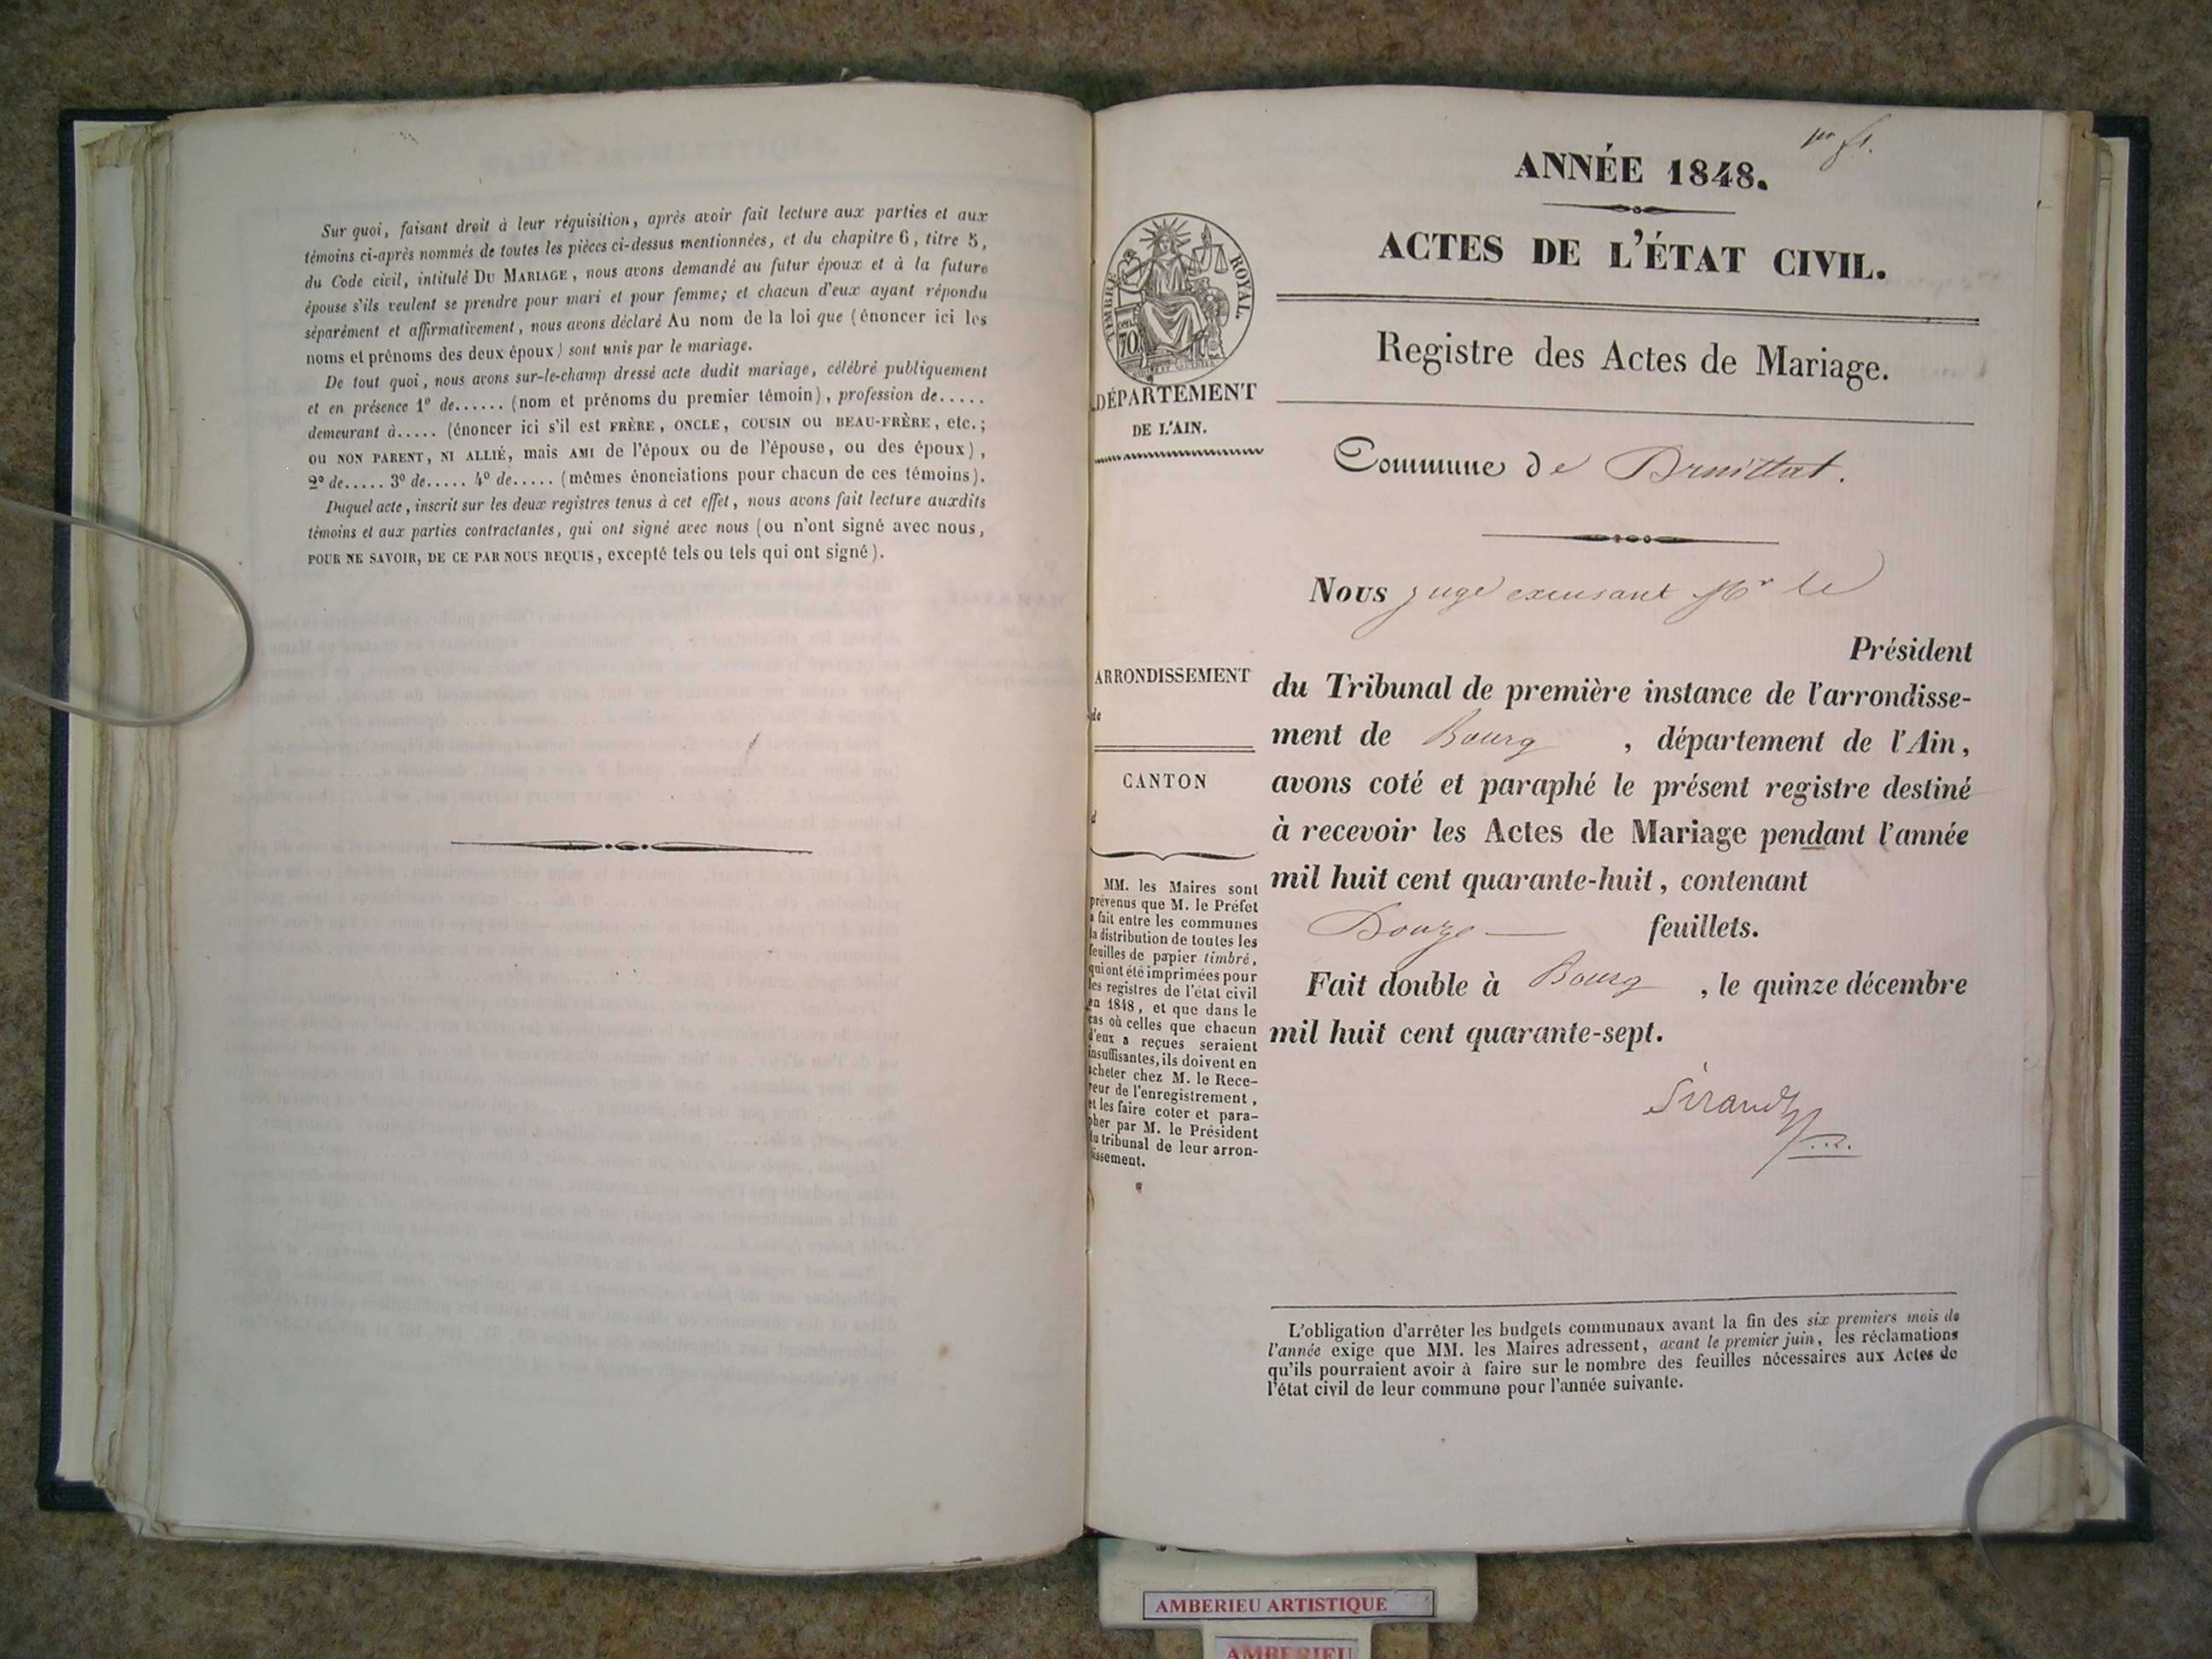 Sur quoi, faisant droit à leur réquisition, après avoir fait lecture aux parties et aux
témoins ci-après nommés de toutes les pièces ci-dessus mentionnées, et du chapitre 6, titre 5,
du Code civil, intitulé DU MARIAGE, nous avons demandé au futur époux et à la future
épouse s'ils veulent se prendre pour mari et pour femme; et chacun d'eux ayant répondu
séparément et affirmativement, nous avons déclaré Au nom de la loi que (énoncer ici les
noms et prénoms des deux époux) sont unis par le mariage.
De tout quoi, nous avons sur-le-champ dressé acte dudit mariage, célébré publiquement
et en présence 1º de...... (nom et prénoms du premier témoin), profession de.....
demeurant à..... (énoncer ici s'il est FRÈRE, ONCLE, COUSIN OU BEAU-FRÈRE, etc.;
ou NON PARENT, NI ALLIÉ, mais AMI de l'époux ou de l'épouse, ou des époux),
2º de..... 3º de..... 4º de..... (mêmes énonciations pour chacun de ces témoins).
Duquel acte, inscrit sur les deux registres tenus à cet effet, nous avons fait lecture auxdits
témoins et aux parties contractantes, qui ont signé avec nous (ou n'ont signé avec nous,
POUR NE SAVOIR, DE CE PAR NOUS REQUIS, excepté tels ou tels qui ont signé).
ANNÉE 1848.
ACTES DE L'ÉTAT CIVIL.
TIMBRE ROYAL
70
DÉPARTEMENT
DE L'AIN.
Registre des Actes de Mariage.
Commune de Druillat.
Nous juge excusant Mr le
Président
du Tribunal de première instance de l'arrondisse-
ment de Bourg, département de l'Ain,
avons coté et paraphé le présent registre destiné
à recevoir les Actes de Mariage pendant l'année
mil huit cent quarante-huit, contenant
Douze feuillets.
Fait double à Bourg, le quinze décembre
mil huit cent quarante-sept.
Sirand
ARRONDISSEMENT
de
CANTON
d
MM. les Maires sont
prévenus que M. le Préfet
a fait entre les communes
la distribution de toutes les
feuilles de papier timbré,
qui ont été imprimées pour
les registres de l'état civil
en 1848, et que dans le
cas où celles que chacun
d'eux a reçues seraient
insuffisantes, ils doivent en
acheter chez M. le Rece-
veur de l'enregistrement,
et les faire coter et para-
pher par M. le Président
du tribunal de leur arron-
dissement.
L'obligation d'arrêter les budgets communaux avant la fin des six premiers mois de
l'année exige que MM. les Maires adressent, avant le premier juin, les réclamations
qu'ils pourraient avoir à faire sur le nombre des feuilles nécessaires aux Actes de
l'état civil de leur commune pour l'année suivante.
AMBERIEU ARTISTIQUE
AMBERIEU